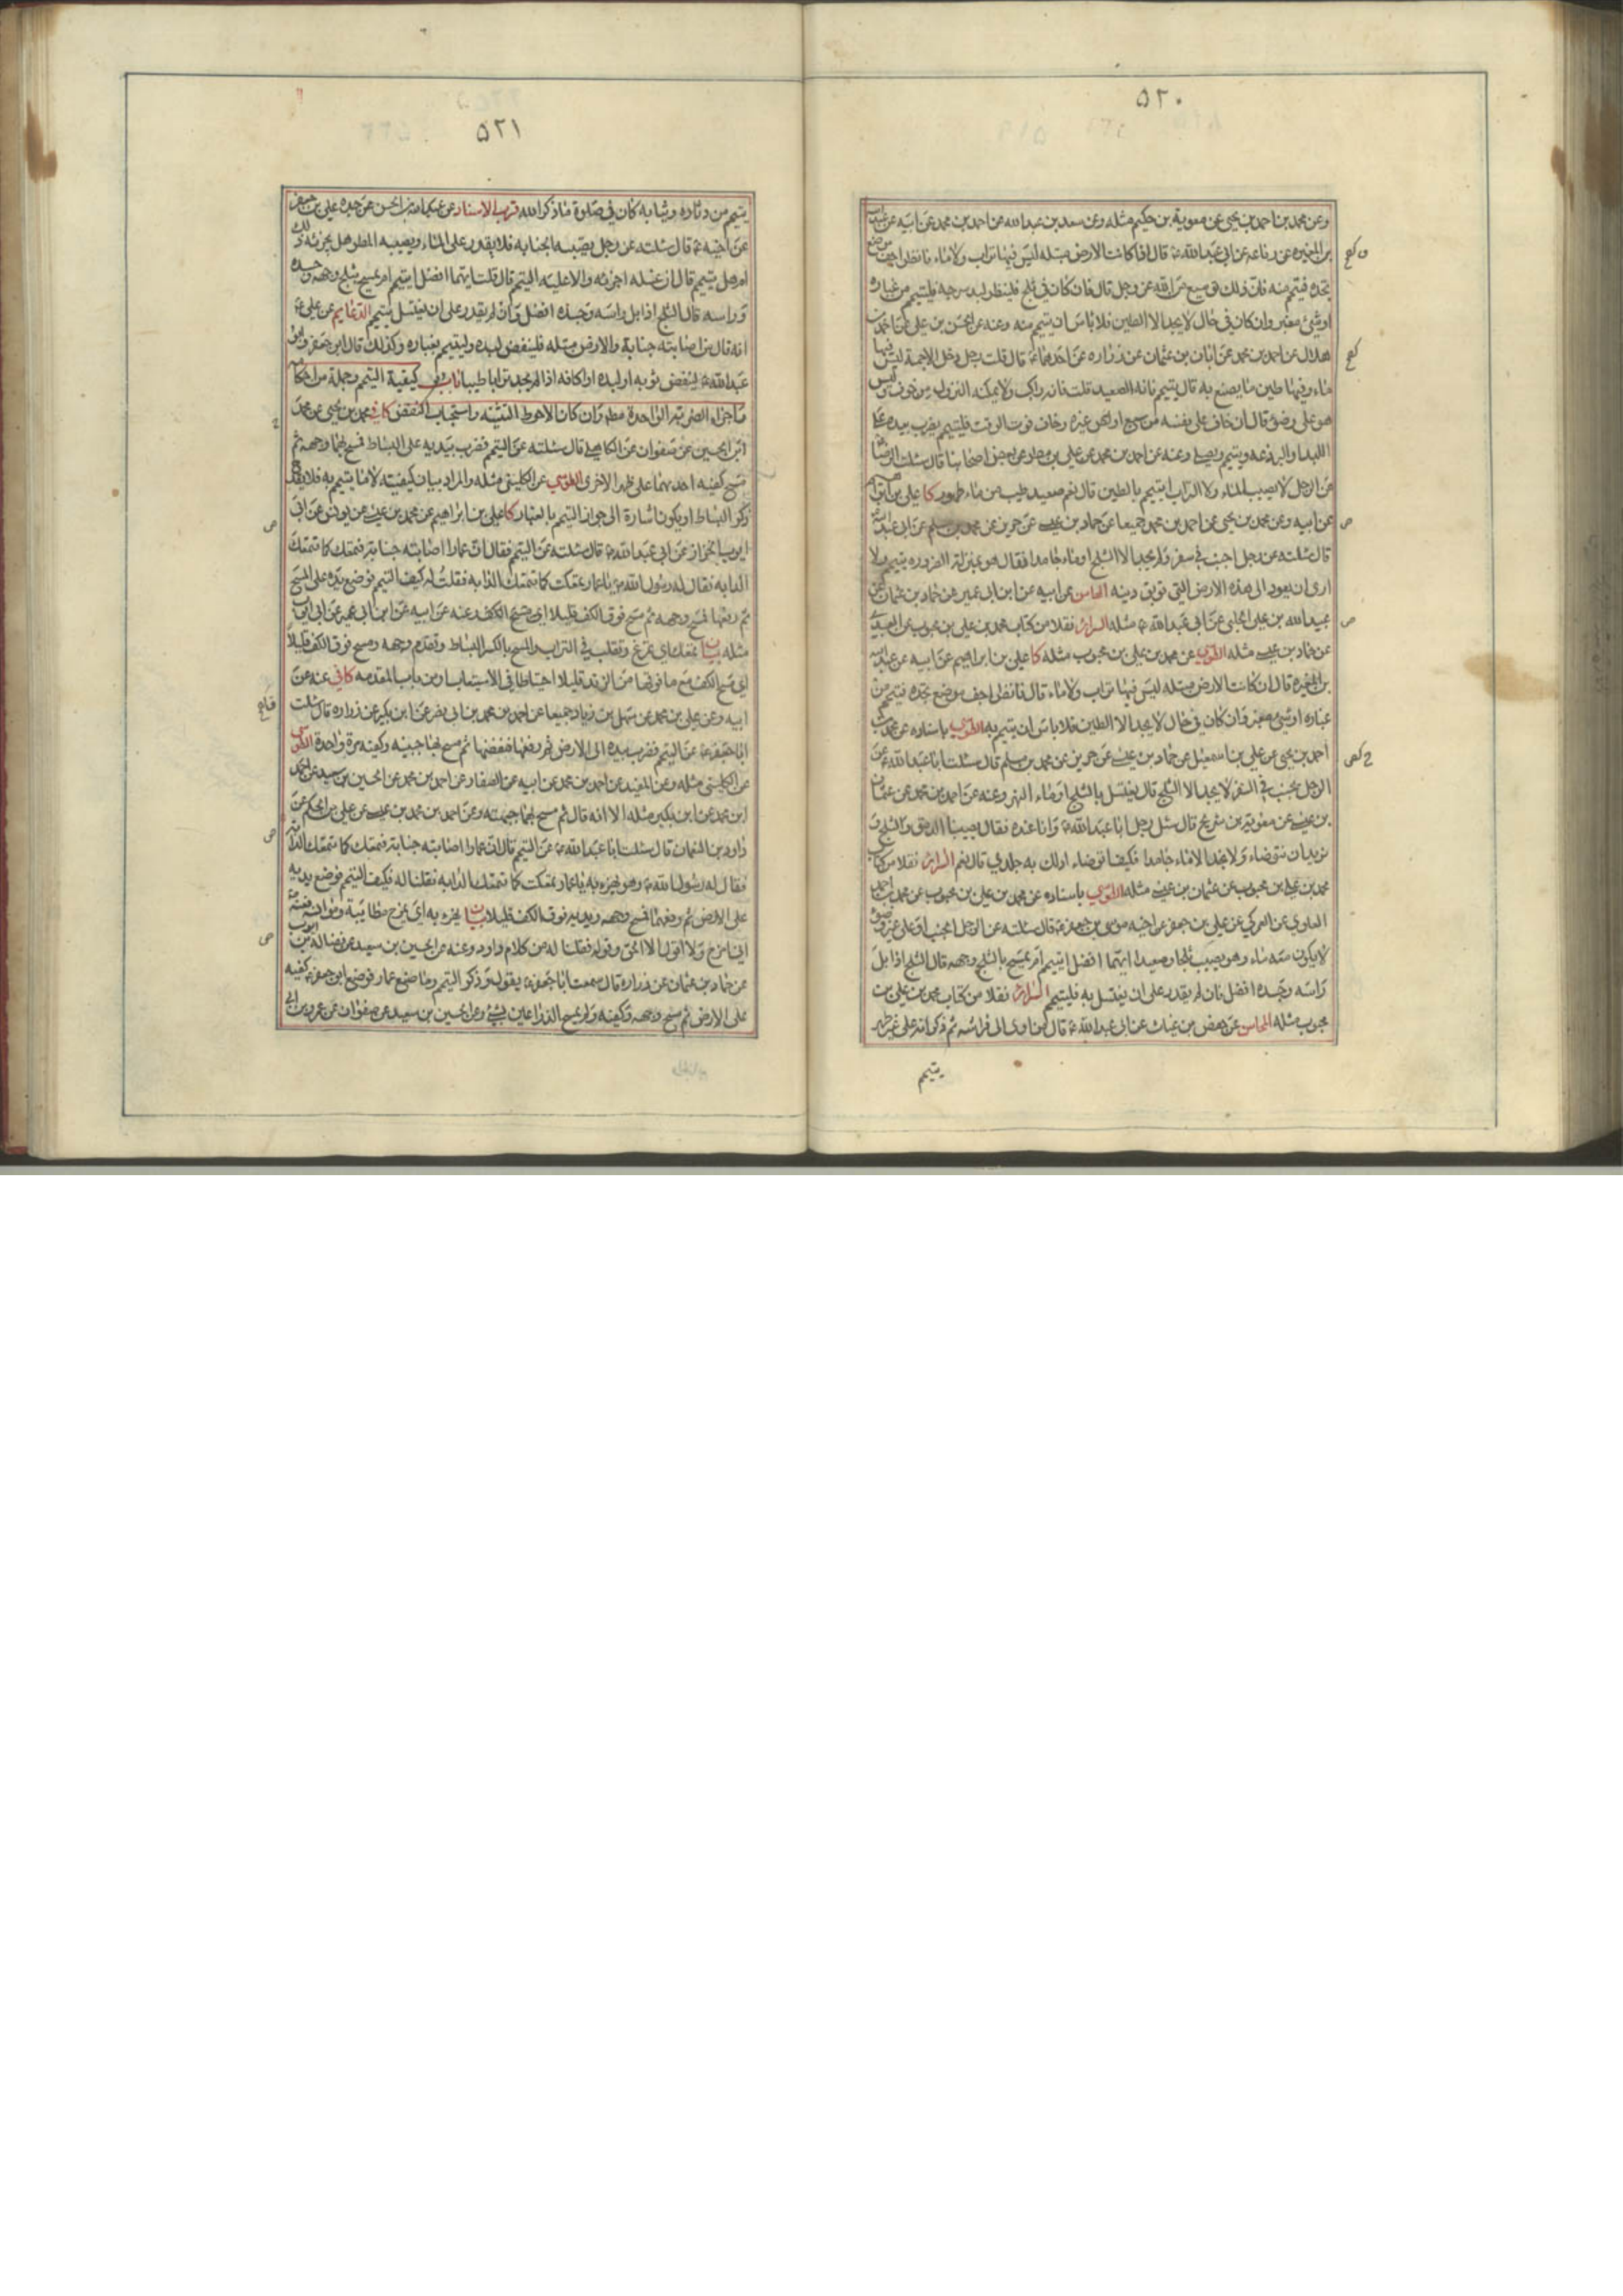 ٥٢٠
وعن محمد بن احمد بن يحيى عن معوية بن حكيم مثله وعن سعد بن عبد الله عن احمد بن محمد عن ابيه عن عبد الله
بن المغيره عن رفاعه عن ابي عبد الله ع قال اذا كانت الارض مبتله ليس فيها تراب ولا ماء فانظر اجف موضع
تجده فتيمم منه فان ذلك توسيع من الله عز وجل قال فان كان في ثلج فلينظر لبد سرجه فليتيمم من غباره
او شئ مغبر وان كان في حال لا يجد الا الطين فلا باس ان يتيمم منه وعنه عن الحسن بن علي عن احمد بن
هلال عن احمد بن محمد عن ابان بن عثمان عن زراره عن احدهما ع قال قلت رجل دخل الاجمة ليس فيها
ماء وفيها طين ما يصنع به قال يتيمم فانه الصعيد قلت فانه راكب ولا يمكنه النزول من خوف وليس
هو على وضوء قال ان خاف على نفسه من سبع او غيره وخاف فوت الوقت فليتيمم يضرب بيده على
اللبد والبرذعه ويتيمم ويصلي وعنه عن احمد بن محمد عن علي بن مطر عن بعض اصحابنا قال سئلت الرضا ع
عن الرجل لا يصيب الماء ولا التراب ايتيمم بالطين قال نعم صعيد طيب وماء طهور كا علي بن ابراهيم
عن ابيه وعن محمد بن يحيى عن احمد بن محمد جميعا عن حماد بن عيسى عن حريز عن محمد بن مسلم عن ابي عبد الله ع
قال سئلته عن رجل اجنب في سفر ولم يجد الا الثلج او ماء جامدا فقال هو بمنزلة الضروره يتيمم ولا
ارى ان يعود الى هذه الارض التي توبق دينه المحاسن عن ابيه عن ابن ابي عمير عن حماد بن عثمان عن
عبيد الله بن علي الحلبي عن ابي عبد الله ع مثله السرائر نقلا من كتاب محمد بن علي بن محبوب عن العبيدي
عن حماد بن عيسى مثله الطوسي عن محمد بن علي بن محبوب مثله كا علي بن ابراهيم عن ابيه عن عبد الله
بن المغيره قال ان كانت الارض مبتله ليس فيها تراب ولا ماء قال فانظر اجف موضع تجده فتيمم من
غباره او شئ مغبر وان كان في حال لا يجد الا الطين فلا باس ان يتيمم به الطوسي باسناده عن محمد بن
احمد بن يحيى عن علي بن اسمعيل عن حماد بن عيسى عن حريز عن محمد بن مسلم قال سئلت ابا عبد الله ع عن
الرجل يجنب في السفر لا يجد الا الثلج قال يغتسل بالثلج او ماء النهر وعنه عن احمد بن محمد عن عثمان
بن عيسى عن معوية بن شريح قال سئل رجل ابا عبد الله ع وانا عنده فقال يصيبنا الدمق والثلج و
نريد ان نتوضاء ولا نجد الا ماء جامدا فكيف اتوضاء ادلك به جلدي قال نعم السرائر نقلا من كتاب
محمد بن علي بن محبوب عن عثمان بن عيسى مثله الطوسي باسناده عن محمد بن علي بن محبوب عن محمد بن احمد
العلوي عن العمركي عن علي بن جعفر عن اخيه موسى بن جعفر ع قال سئلته عن الرجل الجنب او على غير وضوء
لا يكون معه ماء وهو يصيب ثلجا وصعيدا ايهما افضل ايتيمم ام يمسح بالثلج وجهه قال الثلج اذا بل
راسه وجسده افضل فان لم يقدر على ان يغتسل به فليتيمم السرائر نقلا من كتاب محمد بن علي بن
محبوب مثله المحاسن عن حفص بن غياث عن ابي عبد الله ع قال من اوى الى فراشه ثم ذكر انه على غير طهر
يتيمم
٥٢١
يتيمم من دثاره وثيابه كان في صلوة ما ذكر الله قرب الاسناد عن عبد الله بن الحسن عن جده علي بن جعفر
عن اخيه ع قال سئلته عن رجل يصيبه الجنابه فلا يقدر على الماء ويصيبه المطر هل يجزئه ذلك
ام هل يتيمم قال ان غسله اجزئه والا عليه التيمم قال قلت ايهما افضل ايتيمم ام يمسح بثلج وجهه وجسده
وراسه قال الثلج اذا بل راسه وجسده افضل وان لم يقدر على ان يغتسل يتيمم الدعايم عن علي ع
انه قال من اصابته جنابة والارض مبتله فلينفض لبده وليتيمم بغباره وكذلك قال ابو جعفر وابو
عبد الله ع لينفض ثوبه او لبده او اكافه اذا لم يجد ترابا طيبا باب في كيفية التيمم وجملة من احكامه
واجزاء الضربة الواحدة مطم وان كان الاحوط التثنيه واستحباب النفض كا في محمد بن يحيى عن محمد
بن الحسين عن صفوان عن الكاهلي قال سئلته عن التيمم فضرب بيديه على البساط فمسح بهما وجهه ثم
مسح كفيه احدهما على ظهر الاخرى الطوسي عن الكليني مثله والمراد بيان كيفيته لا ما يتيمم به فلا يضر
ذكر البساط او يكون اشارة الى جواز التيمم بالغبار كا علي بن ابراهيم عن محمد بن عيسى عن يونس عن ابي
ايوب الخزاز عن ابي عبد الله ع قال سئلته عن التيمم فقال ان عمارا اصابته جنابة فتمعك كما تتمعك
الدابه فقال له رسول الله ص يا عمار تمعكت كما تتمعك الدابه فقلت له كيف التيمم فوضع يده على المسح
ثم رفعها فمسح وجهه ثم مسح فوق الكف قليلا اي مسح الكف وعنه عن ابيه عن ابن ابي عمير عن ابي ايوب
مثله بيان تمعك اي تمرغ وتقلب في التراب والمسح بالكسر البساط وتقدم وجهه ومسح فوق الكف قليلا
اي مسح الكف مع ما فوقها من الزند قليلا احتياطا في الاستيعاب ومن باب المقدمه كا في عنه عن
ابيه وعن علي بن محمد عن سهل بن زياد جميعا عن احمد بن محمد بن ابي نصر عن ابن بكير عن زراره قال سئلت
ابا جعفر ع عن التيمم فضرب بيده الى الارض ثم رفعها فنفضها ثم مسح بها جبينه وكفيه مرة واحدة الطوسي
عن الكليني مثله وعن المفيد عن احمد بن محمد عن ابيه عن الصفار عن احمد بن محمد عن الحسين بن سعيد عن احمد
بن محمد عن ابن بكير مثله الا انه قال ثم مسح بهما جبهته وعن احمد بن محمد بن عيسى عن علي بن الحكم عن
داود بن النعمان قال سئلت ابا عبد الله ع عن التيمم قال ان عمارا اصابته جنابة فتمعك كما تتمعك الدابه
فقال له رسول الله ص وهو يهزء به يا عمار تمعكت كما تتمعك الدابه فقلنا له فكيف التيمم فوضع يديه
على الارض ثم رفعهما فمسح وجهه ويديه فوق الكف قليلا بيان يهزء به اي يمزح مطايبة
اني امزح ولا اقول الا الحق وقوله فقلنا له من كلام داود وعنه عن الحسين بن سعيد عن فضالة بن ايوب
عن حماد بن عثمان عن زراره قال سمعت ابا جعفر ع يقول وذكر التيمم وما صنع عمار فوضع ابو جعفر ع كفيه
على الارض ثم مسح وجهه وكفيه ولم يمسح الذراعين بشئ وعن الحسين بن سعيد عن صفوان عن عمرو بن ابي